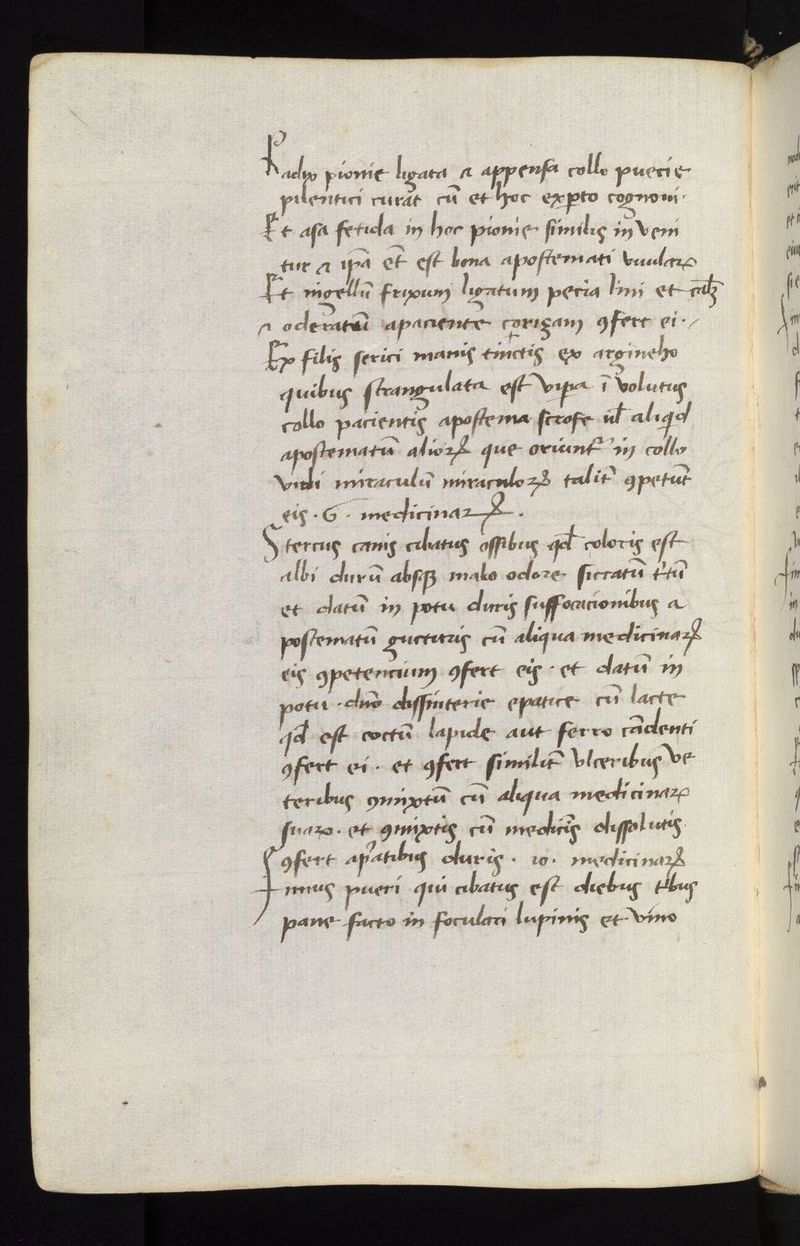 Radix pionie ligata ⁊ appensa collo puerie
pilentici curat cū et hoc exꝑto cognoui·
Et asa fetida in hoc pionie similis in veni
tur ⁊ ip̄a et̄ est bona apostemati vuularꝝ
Et nigellū frixum ligatum pecia lini et
⁊ oderatum apaciente corigam ꝯfert ei·/
Ex filis serici manis tinctis ex argineho
quibus strangulata est vipa ī volutus
collo pacientis apostema scrofe ul̄ aliquid
apostematū aliorꝝ que oriunt᷑ in collo
vidi miraculū miraculorꝝ talit᷑ ꝯpetūt
eis · G · medicinarꝝ ·
Stercus canis cibatus ossibus qd̄ coloris est
albi durū absqꝫ malo odore siccatū t᷑tū
et datū in potu duris suffocacionibus a
postematū gucturis cū aliqua medicinarꝝ
eis ꝯpetencium ꝯfert eis · et datū in
potu · dn̄o dissinterie epatice cū lacte
qd̄ est coctū lapide aut ferro cādenti
ꝯfert ei · et ꝯfert similit᷑ vlceribus ve
teribus ꝯmixtū cū aliqua medicinarꝝ
suarꝝ · et ꝯmixtis cū medicīs dissolutis
ꝯfert ap̄atibus duris · 10 · medicinarꝝ
Fimus pueri qui cibatus est diebus t᷑bus
pane facto in foculari lupinis et vino